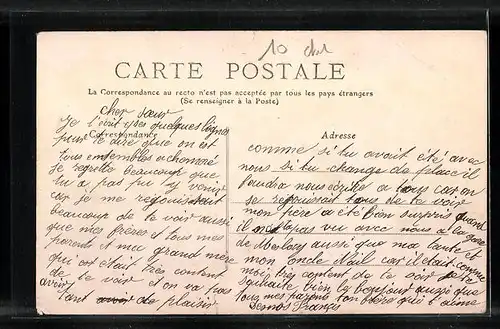 10 chd
CARTE POSTALE
La Correspondance au recto n'est pas acceptée par tous les pays étrangers
(Se renseigner à la Poste)
Correspondance
Adresse
cher sœur
Je t'écrit ses quelques lignes
pour te dire que on est
tous ensembles a
Je regrette beaucoup que
tu a pas pu y venir
car je me rejouissait
beaucoup de te voir aussi
que mes frères et tous mes
parent et mu grand mère
qui car était très content
de te voir et on va pas
avoir tant avoir de plaisir
comme si tu avait été avec
nous si tu change de place il
faudra nous écrire a tous car on
se réjouissait tous de te voir
mon frère a été bien surpris quand
il ne ta pas vu avec nous a la gare
de aussi que ma tante et
mon oncle car il était comme
mois très content de te voir je te
souhaite bien le bonjour aussi que
tous mes parents ton frère qui t'aime
Francis